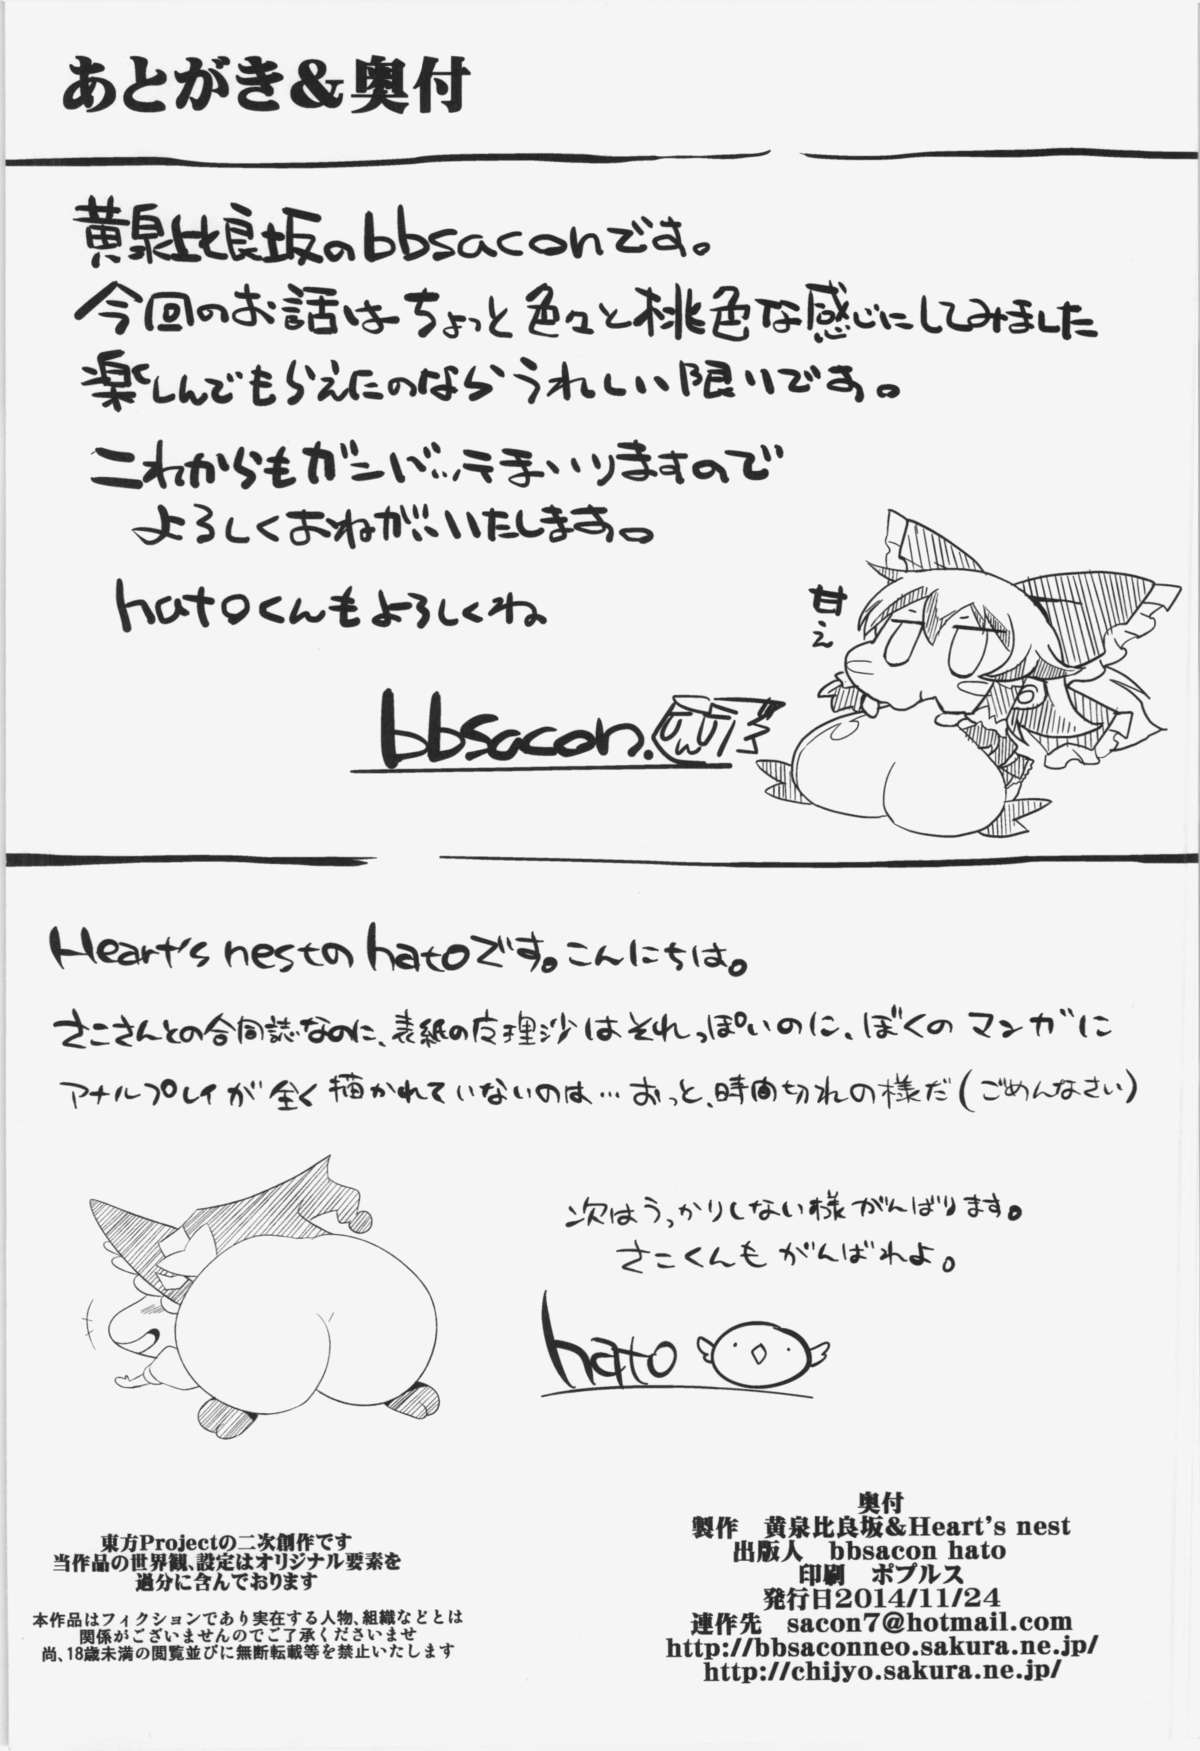 あとがき&奥付
黄泉比良坂のbbsaconです。
今回のお話はちょっと色々と桃色な感じにしてみました
楽しんでもらえたのならうれしい限りです。
これからもガンバッテまいりますので
よろしくおねがいいたします。
hatoくんもよろしくね。
甘え
bbsacon.
Heart's nestのhatoです。こんにちは。
さこさんとの合同誌なのに、表紙の魔理沙はそれっぽいのに、ぼくのマンガに
アナルプレイが全く描かれていないのは…おっと、時間切れの様だ(ごめんなさい)
次はうっかりしない様がんばります。
さこくんもがんばれよ。
hato
東方Projectの二次創作です
当作品の世界観、設定はオリジナル要素を
過分に含んでおります
本作品はフィクションであり実在する人物、組織などとは
関係がございませんのでご了承くださいませ
尚、18歳未満の閲覧並びに無断転載等を禁止いたします
奥付
製作 黄泉比良坂&Heart's nest
出版人 bbsacon hato
印刷 ポプルス
発行日2014/11/24
連作先 sacon7@hotmail.com
http://bbsaconneo.sakura.ne.jp/
http://chijyo.sakura.ne.jp/